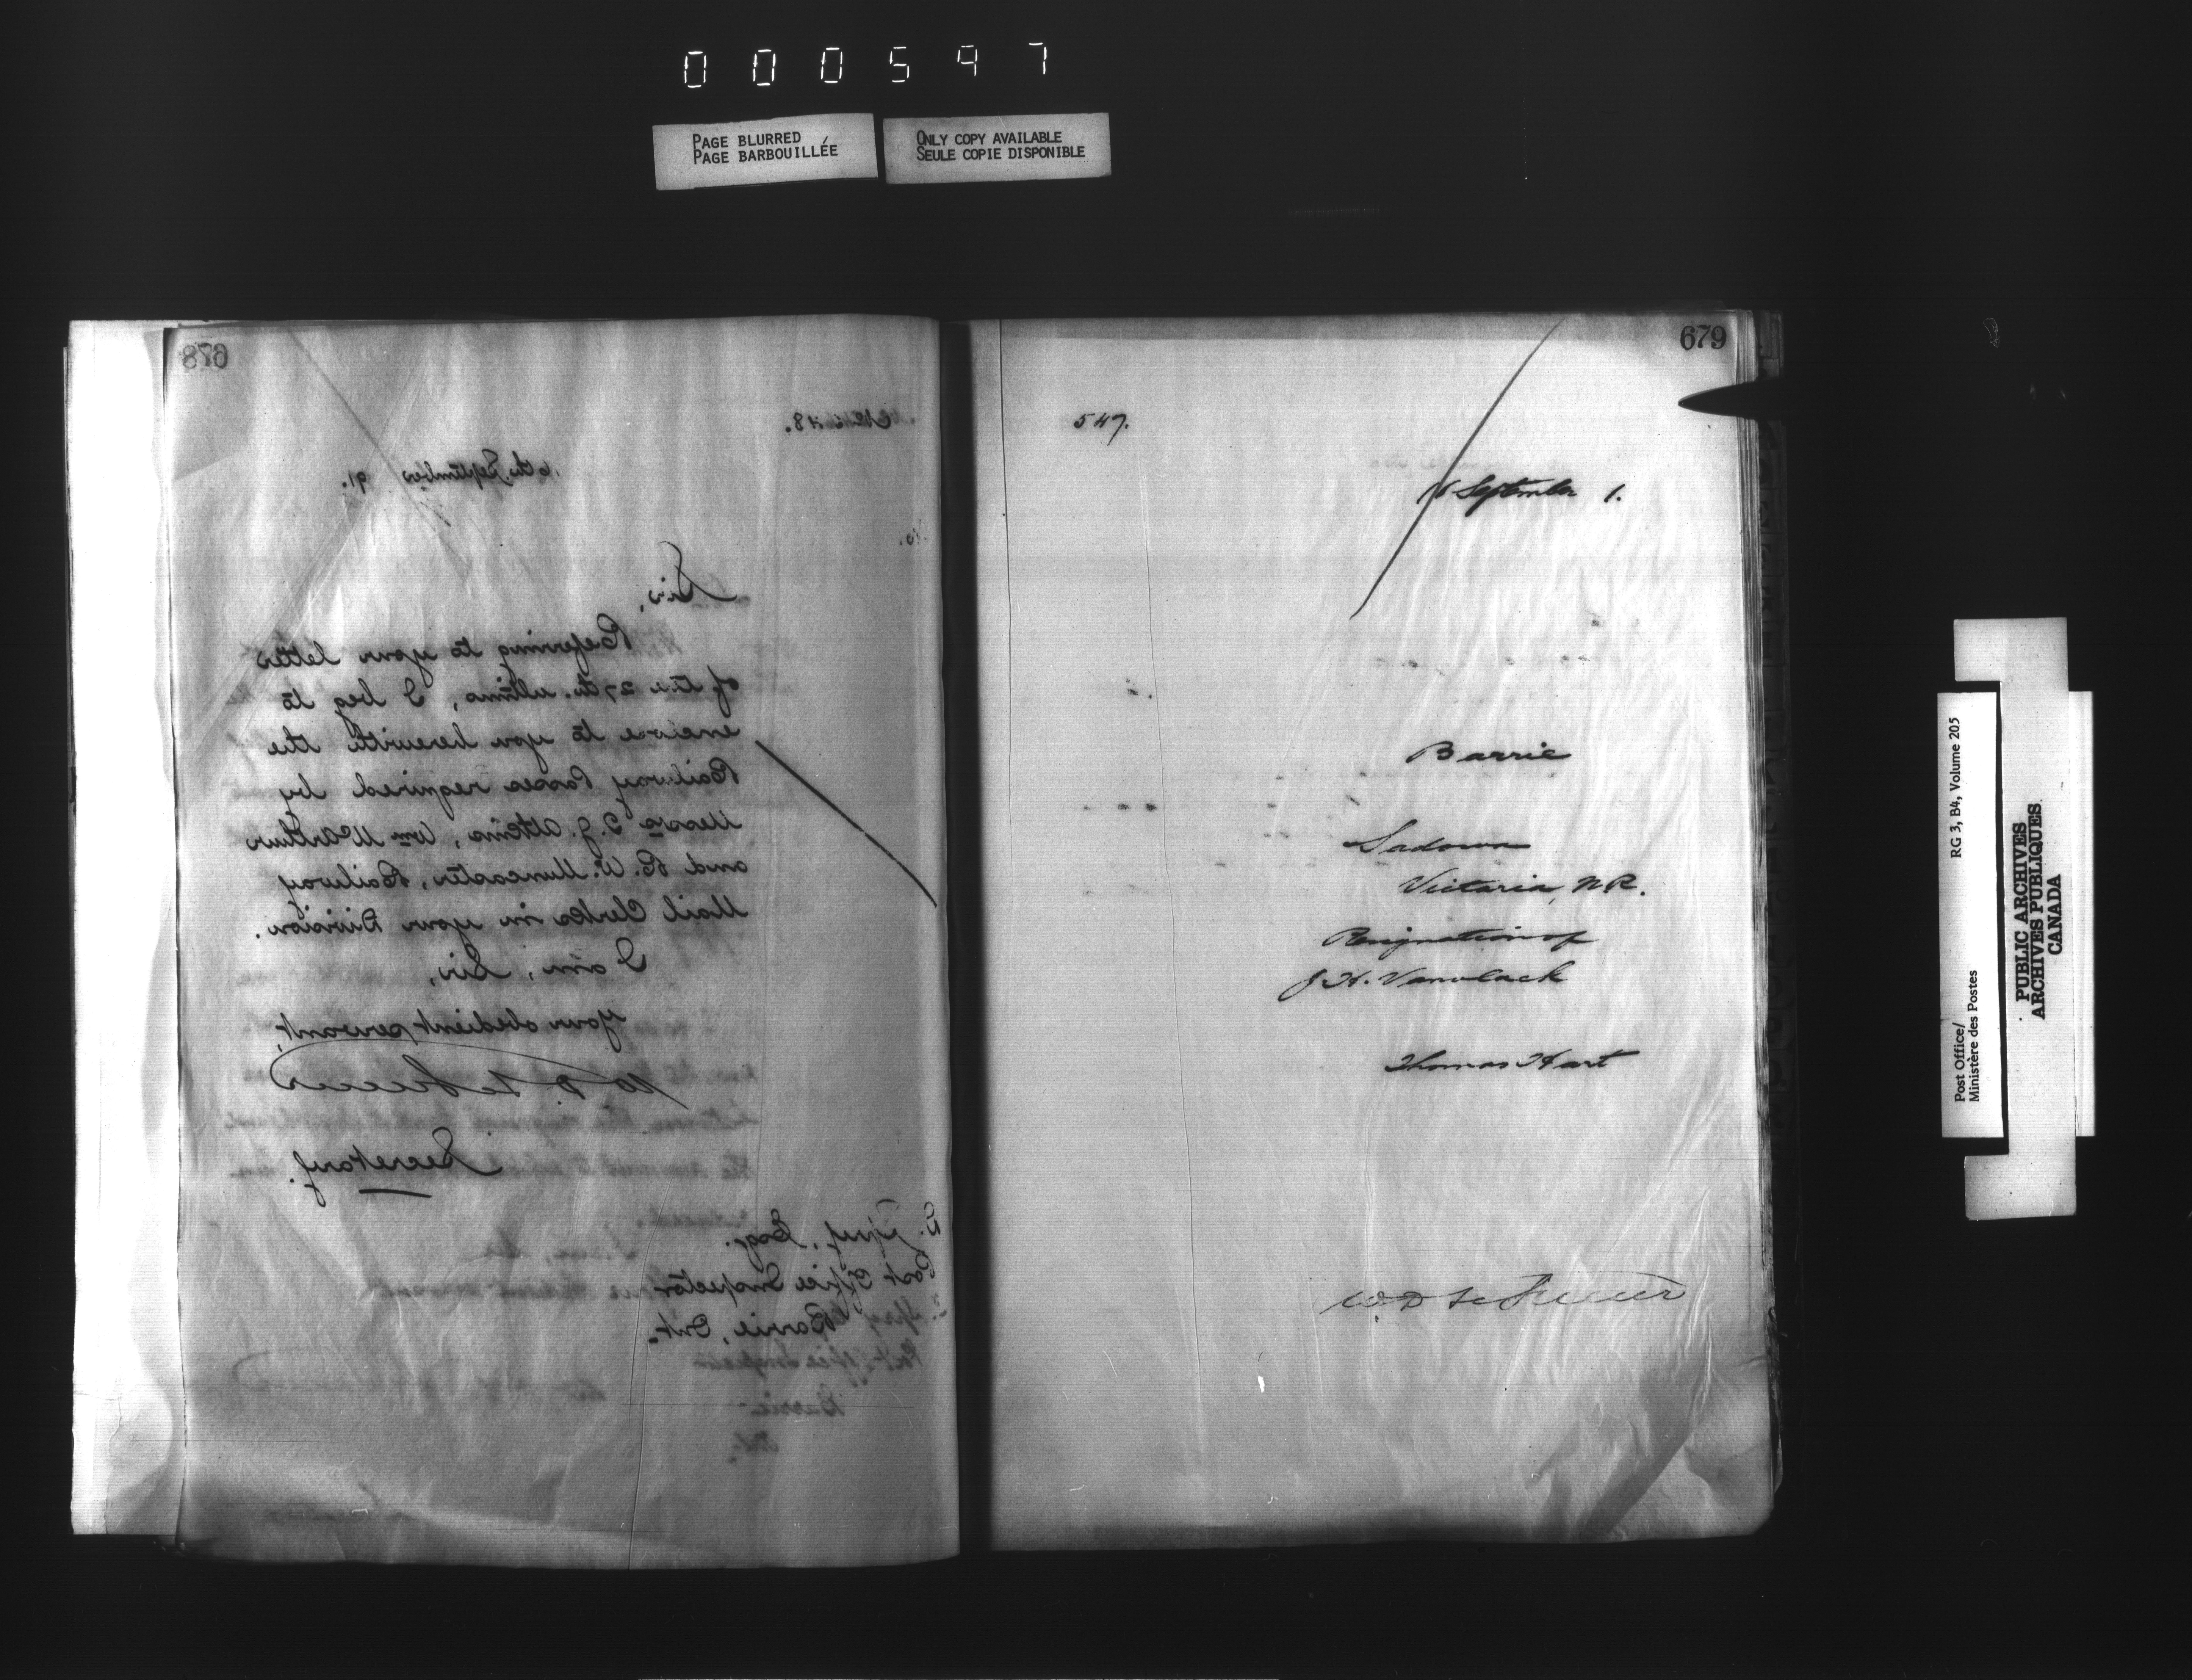 000597
PAGE BLURRED
PAGE BARBOUILLÉE
ONLY COPY AVAILABLE
SEULE COPIE DISPONIBLE
678
16th September 91.
Sir,
Referring to your letter
of the 27th. ultimo, I beg to
enclose to you herewith the
Railway Passes required by
Messrs J. Atkins, Wm McArthur
and R. W. Muncaster, Railway
Mail Clerks in your Division.
I am, Sir,
Your obedient servant,
W. D. LeSueur
Secretary.
Esq.
Post Office Inspector
Barrie, Ont.
Post Office Inspector
Barrie
Ont.
679
547.
16 September 1.
Barrie
Sadowa
Victoria, N.R.
Resignation of
J. H. Vanvlack
Thomas Hart
W D LeSueur
Post Office/
Ministère des Postes
RG 3, B4, Volume 205
PUBLIC ARCHIVES
ARCHIVES PUBLIQUES
CANADA